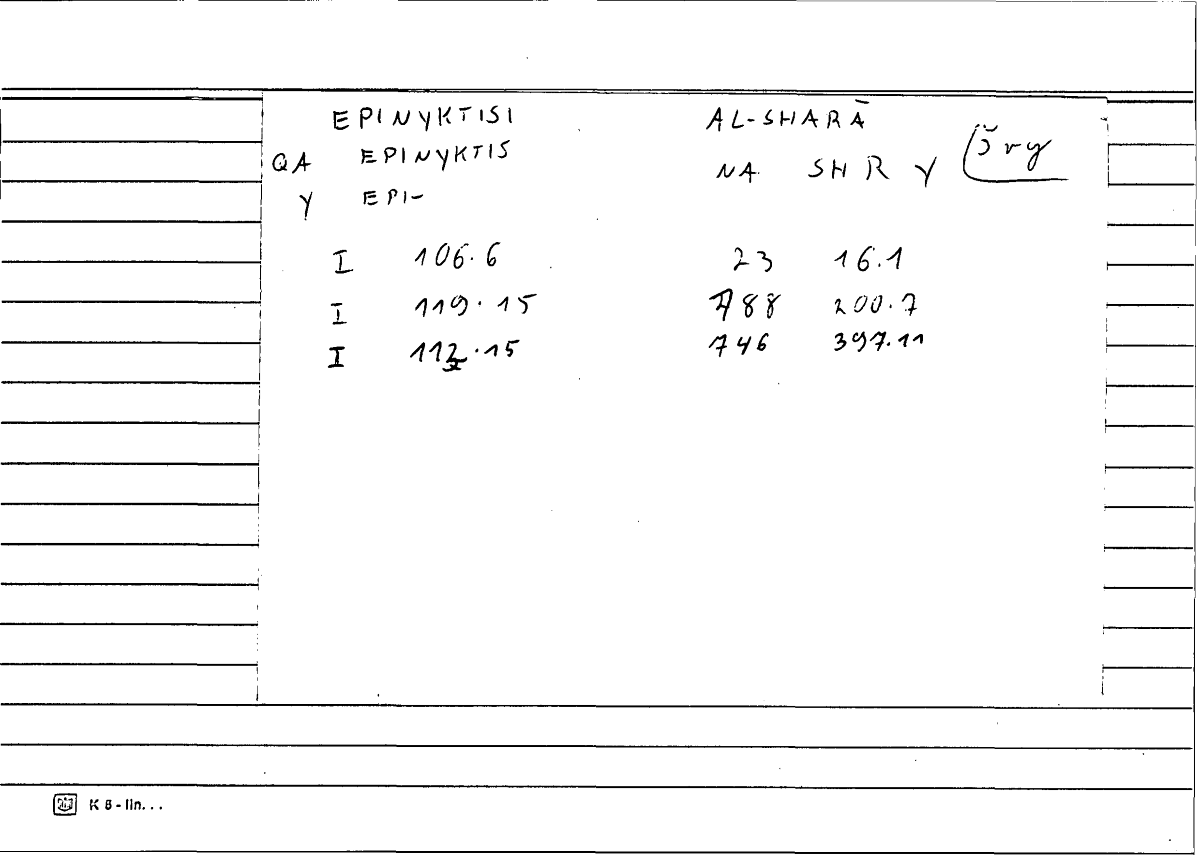 EPINYKTISI AL-SHARĀ
QA EPINYKTIS NA SH R Y šry
Y EPI-
I 106.6 23 16.1
I 119.15 788 200.7
I 112.15 746 397.11
K 8 - lin. . .